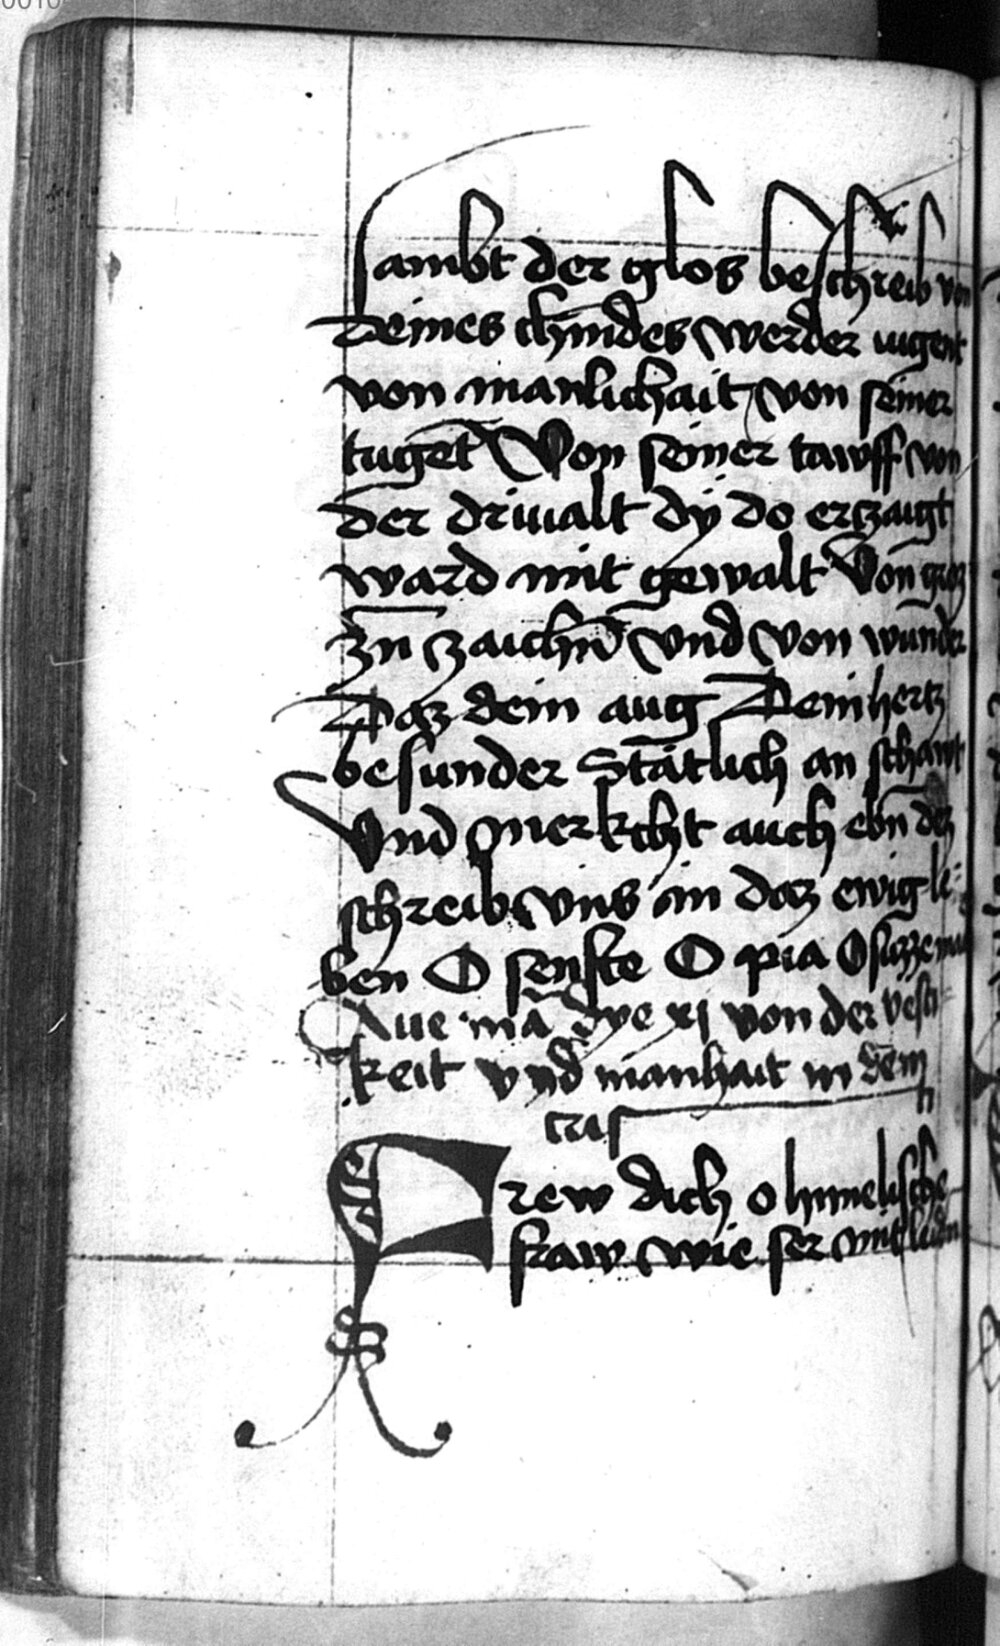 sambt der glos beschreib von
Deines chindes werder iugent
von manlichait von seiner
tuget Von seiner tawff von
der drivalt dÿ do erczaigt
ward mit gewalt Von groz
zn zaichn vnd von wunder
Daz dein aug Dein hertz
besunder Stätlich an schawt
Vnd merkcht auch ebn dez
schreib vns in daz ewig le⸗
ben O senfte O pia O suzze ma
Aue mā Dye xj von der vesti⸗
keit vnd manhait in dem
cris
Frew dich o himelische
fraw wie ser mitleidn